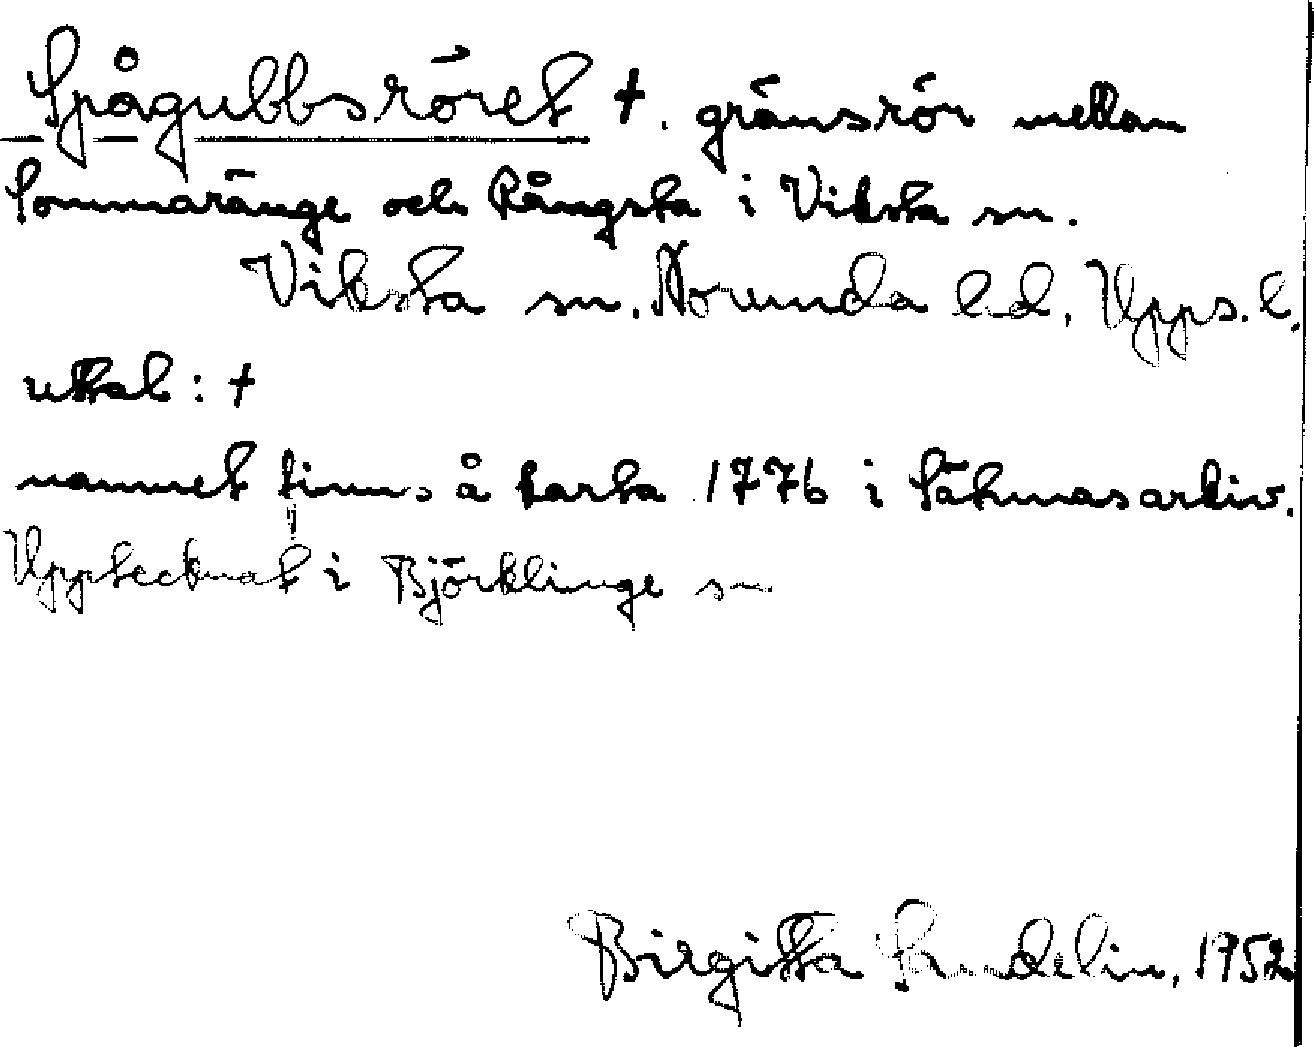 Spågubbsröret †. gränsrör mellan
Sommaränge och Rångsta i Viksta sn.
Viksta sn. Norunda hd, Upps. l.
uttal: †
namnet finns å karta 1776 i arkiv.
Upptecknat i Björklinge sn
Birgitta 1952